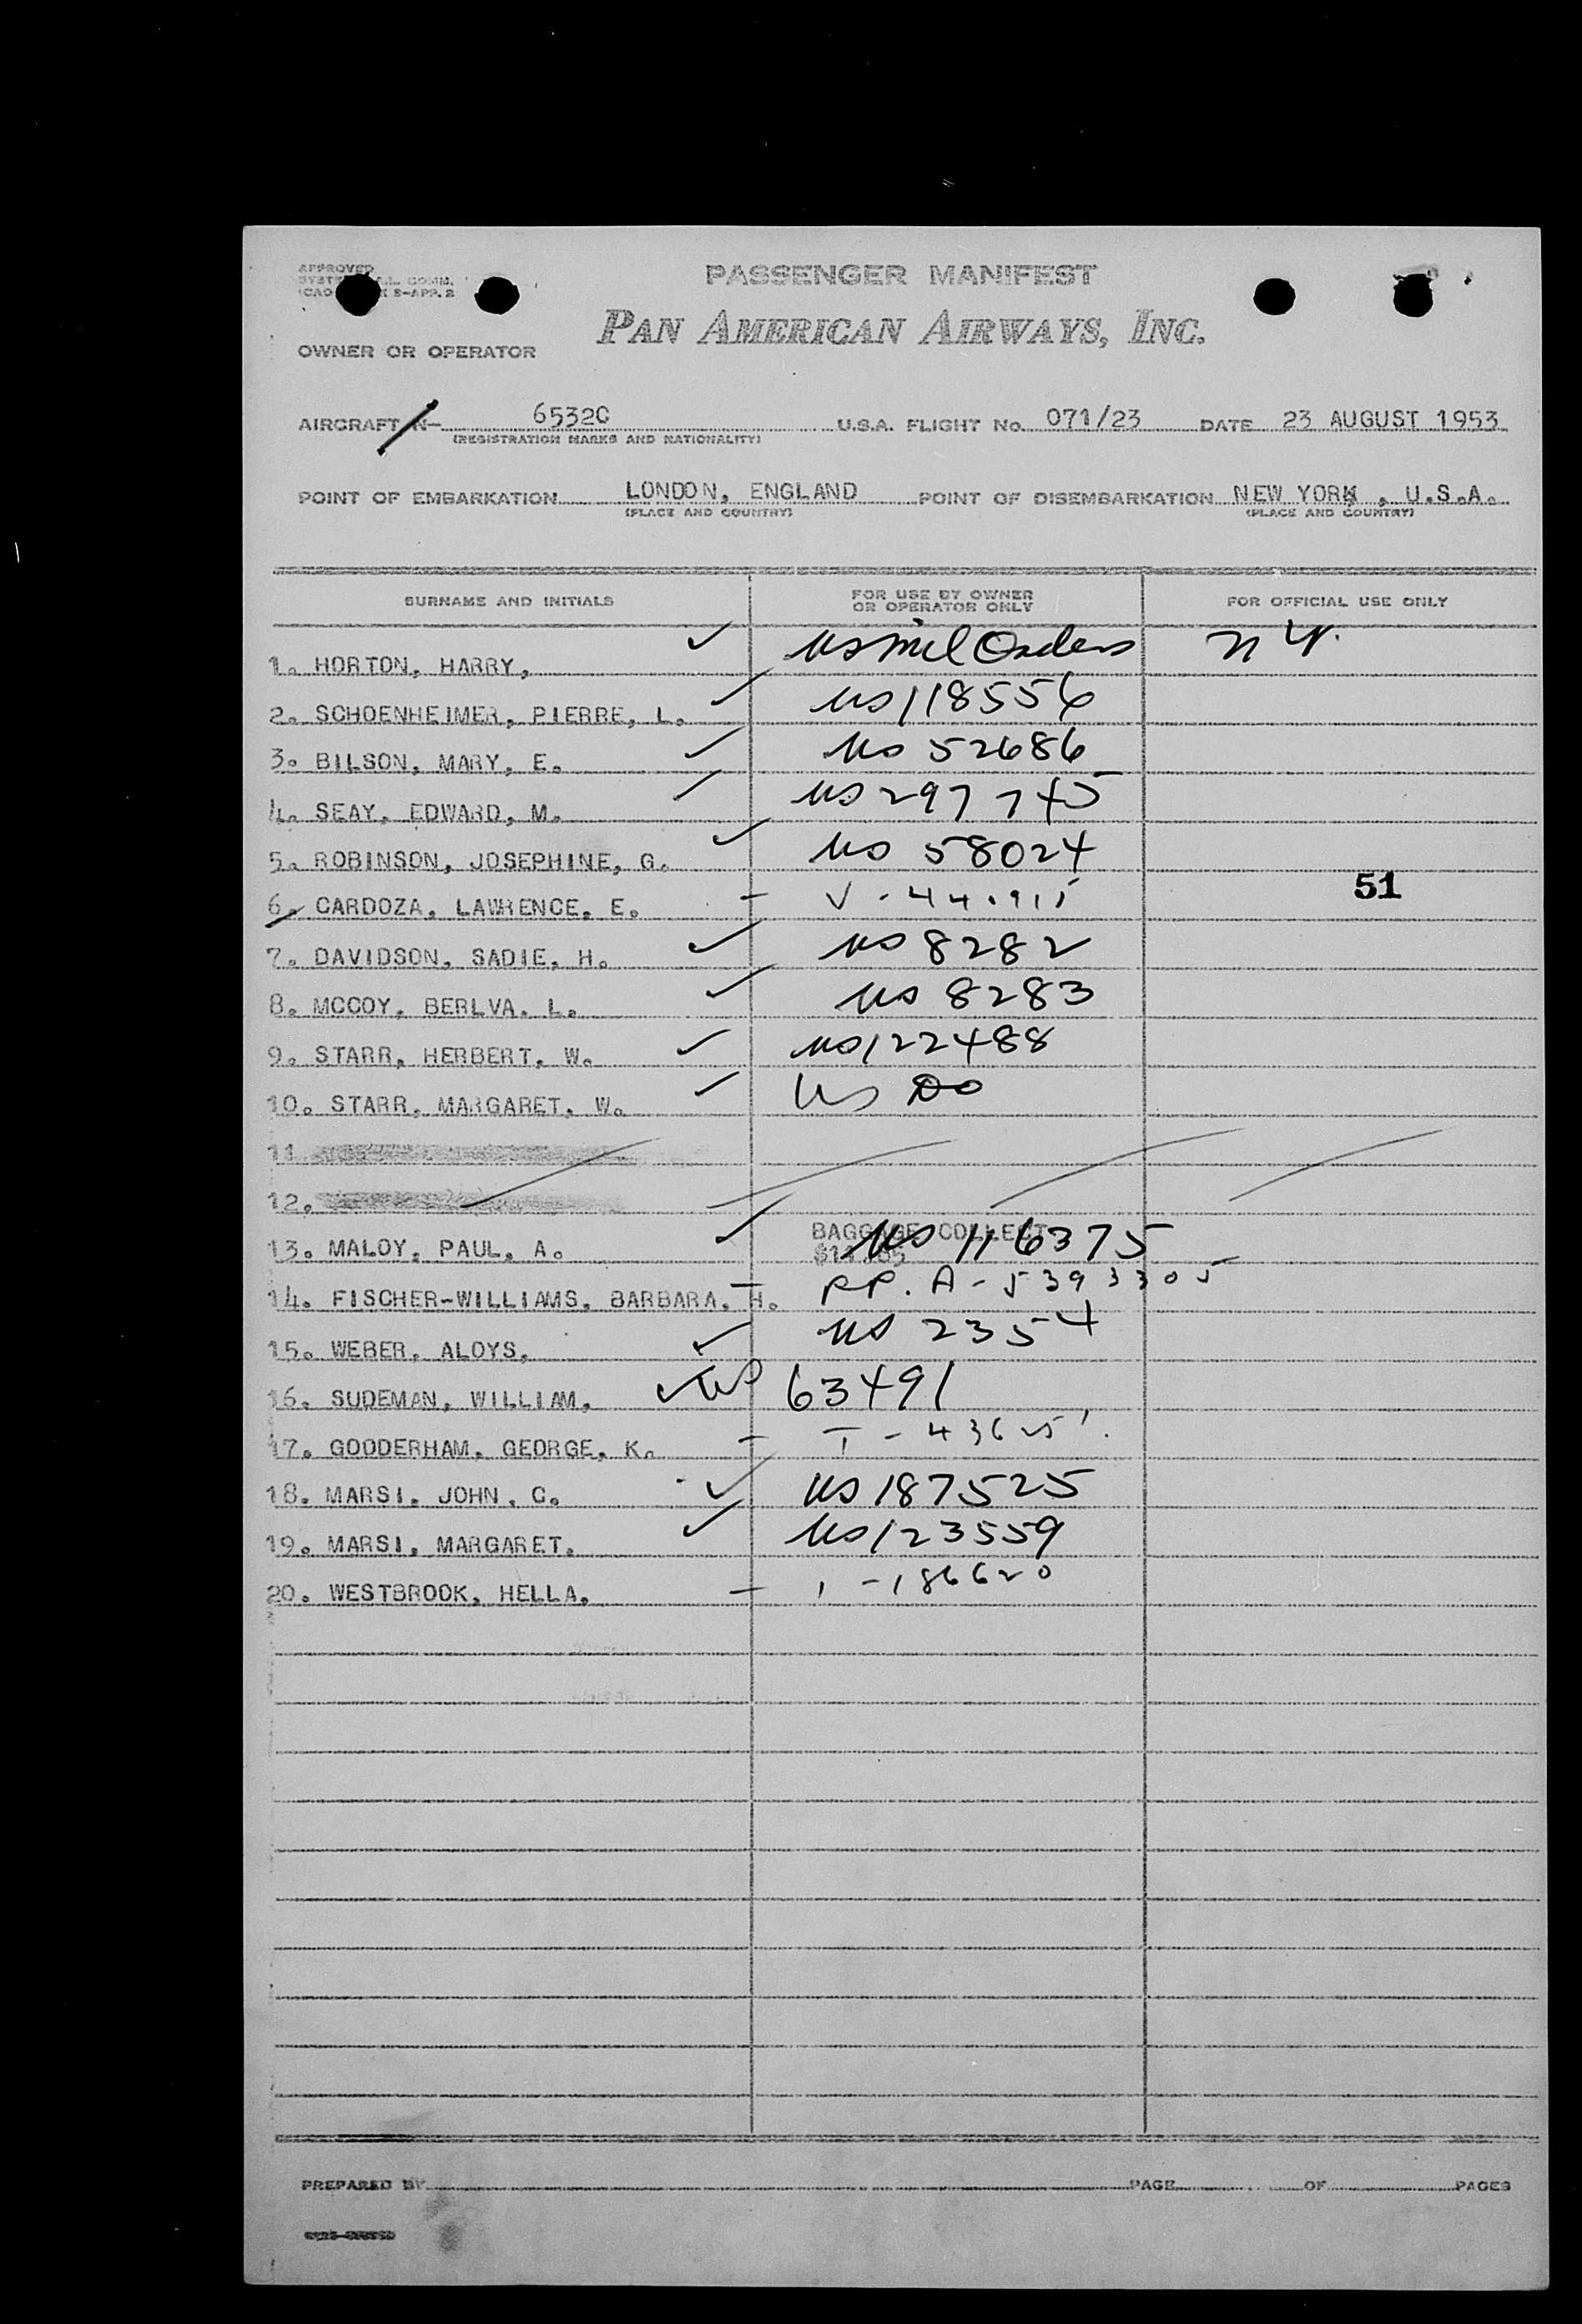 APPROVED
PASSENGER MANIFEST
PAN AMERICAN AIRWAYS, INC.
OWNER OR OPERATOR
AIRCRAFT N- 6532C U.S.A. FLIGHT No. 071/23 DATE 23 AUGUST 1953
(REGISTRATION MARKS AND NATIONALITY)
POINT OF EMBARKATION LONDON, ENGLAND POINT OF DISEMBARKATION NEW YORK, U.S.A.
(PLACE AND COUNTRY) (PLACE AND COUNTRY)
SURNAME AND INITIALS FOR USE BY OWNER OR OPERATOR ONLY FOR OFFICIAL USE ONLY
1. HORTON, HARRY, ✓ US Mil Orders N Y.
2. SCHOENHEIMER, PIERRE, L. ✓ US 118556
3. BILSON, MARY, E. ✓ US 52686
4. SEAY, EDWARD, M. ✓ US 297745
5. ROBINSON, JOSEPHINE, G. ✓ US 58024
51
6. CARDOZA, LAWRENCE, E. – V-
7. DAVIDSON, SADIE, H. ✓ US 8282
8. MCCOY, BERLVA, L. ✓ US 8283
9. STARR, HERBERT, W. ✓ US 122488
10. STARR, MARGARET, W. ✓ US DO
11
12.
13. MALOY, PAUL, A. ✓ BAGGAGE COLLECT US 116375
14. FISCHER-WILLIAMS, BARBARA, H. – PP. A-5393305
15. WEBER, ALOYS, ✓ US 2354
16. SUDEMAN, WILLIAM, ✓ US 63491
17. GOODERHAM, GEORGE, K. –
18. MARSI, JOHN, C. ✓ US 187525
19. MARSI, MARGARET, ✓ US 123559
20. WESTBROOK, HELLA, – 1-186620
PREPARED BY PAGE OF PAGES